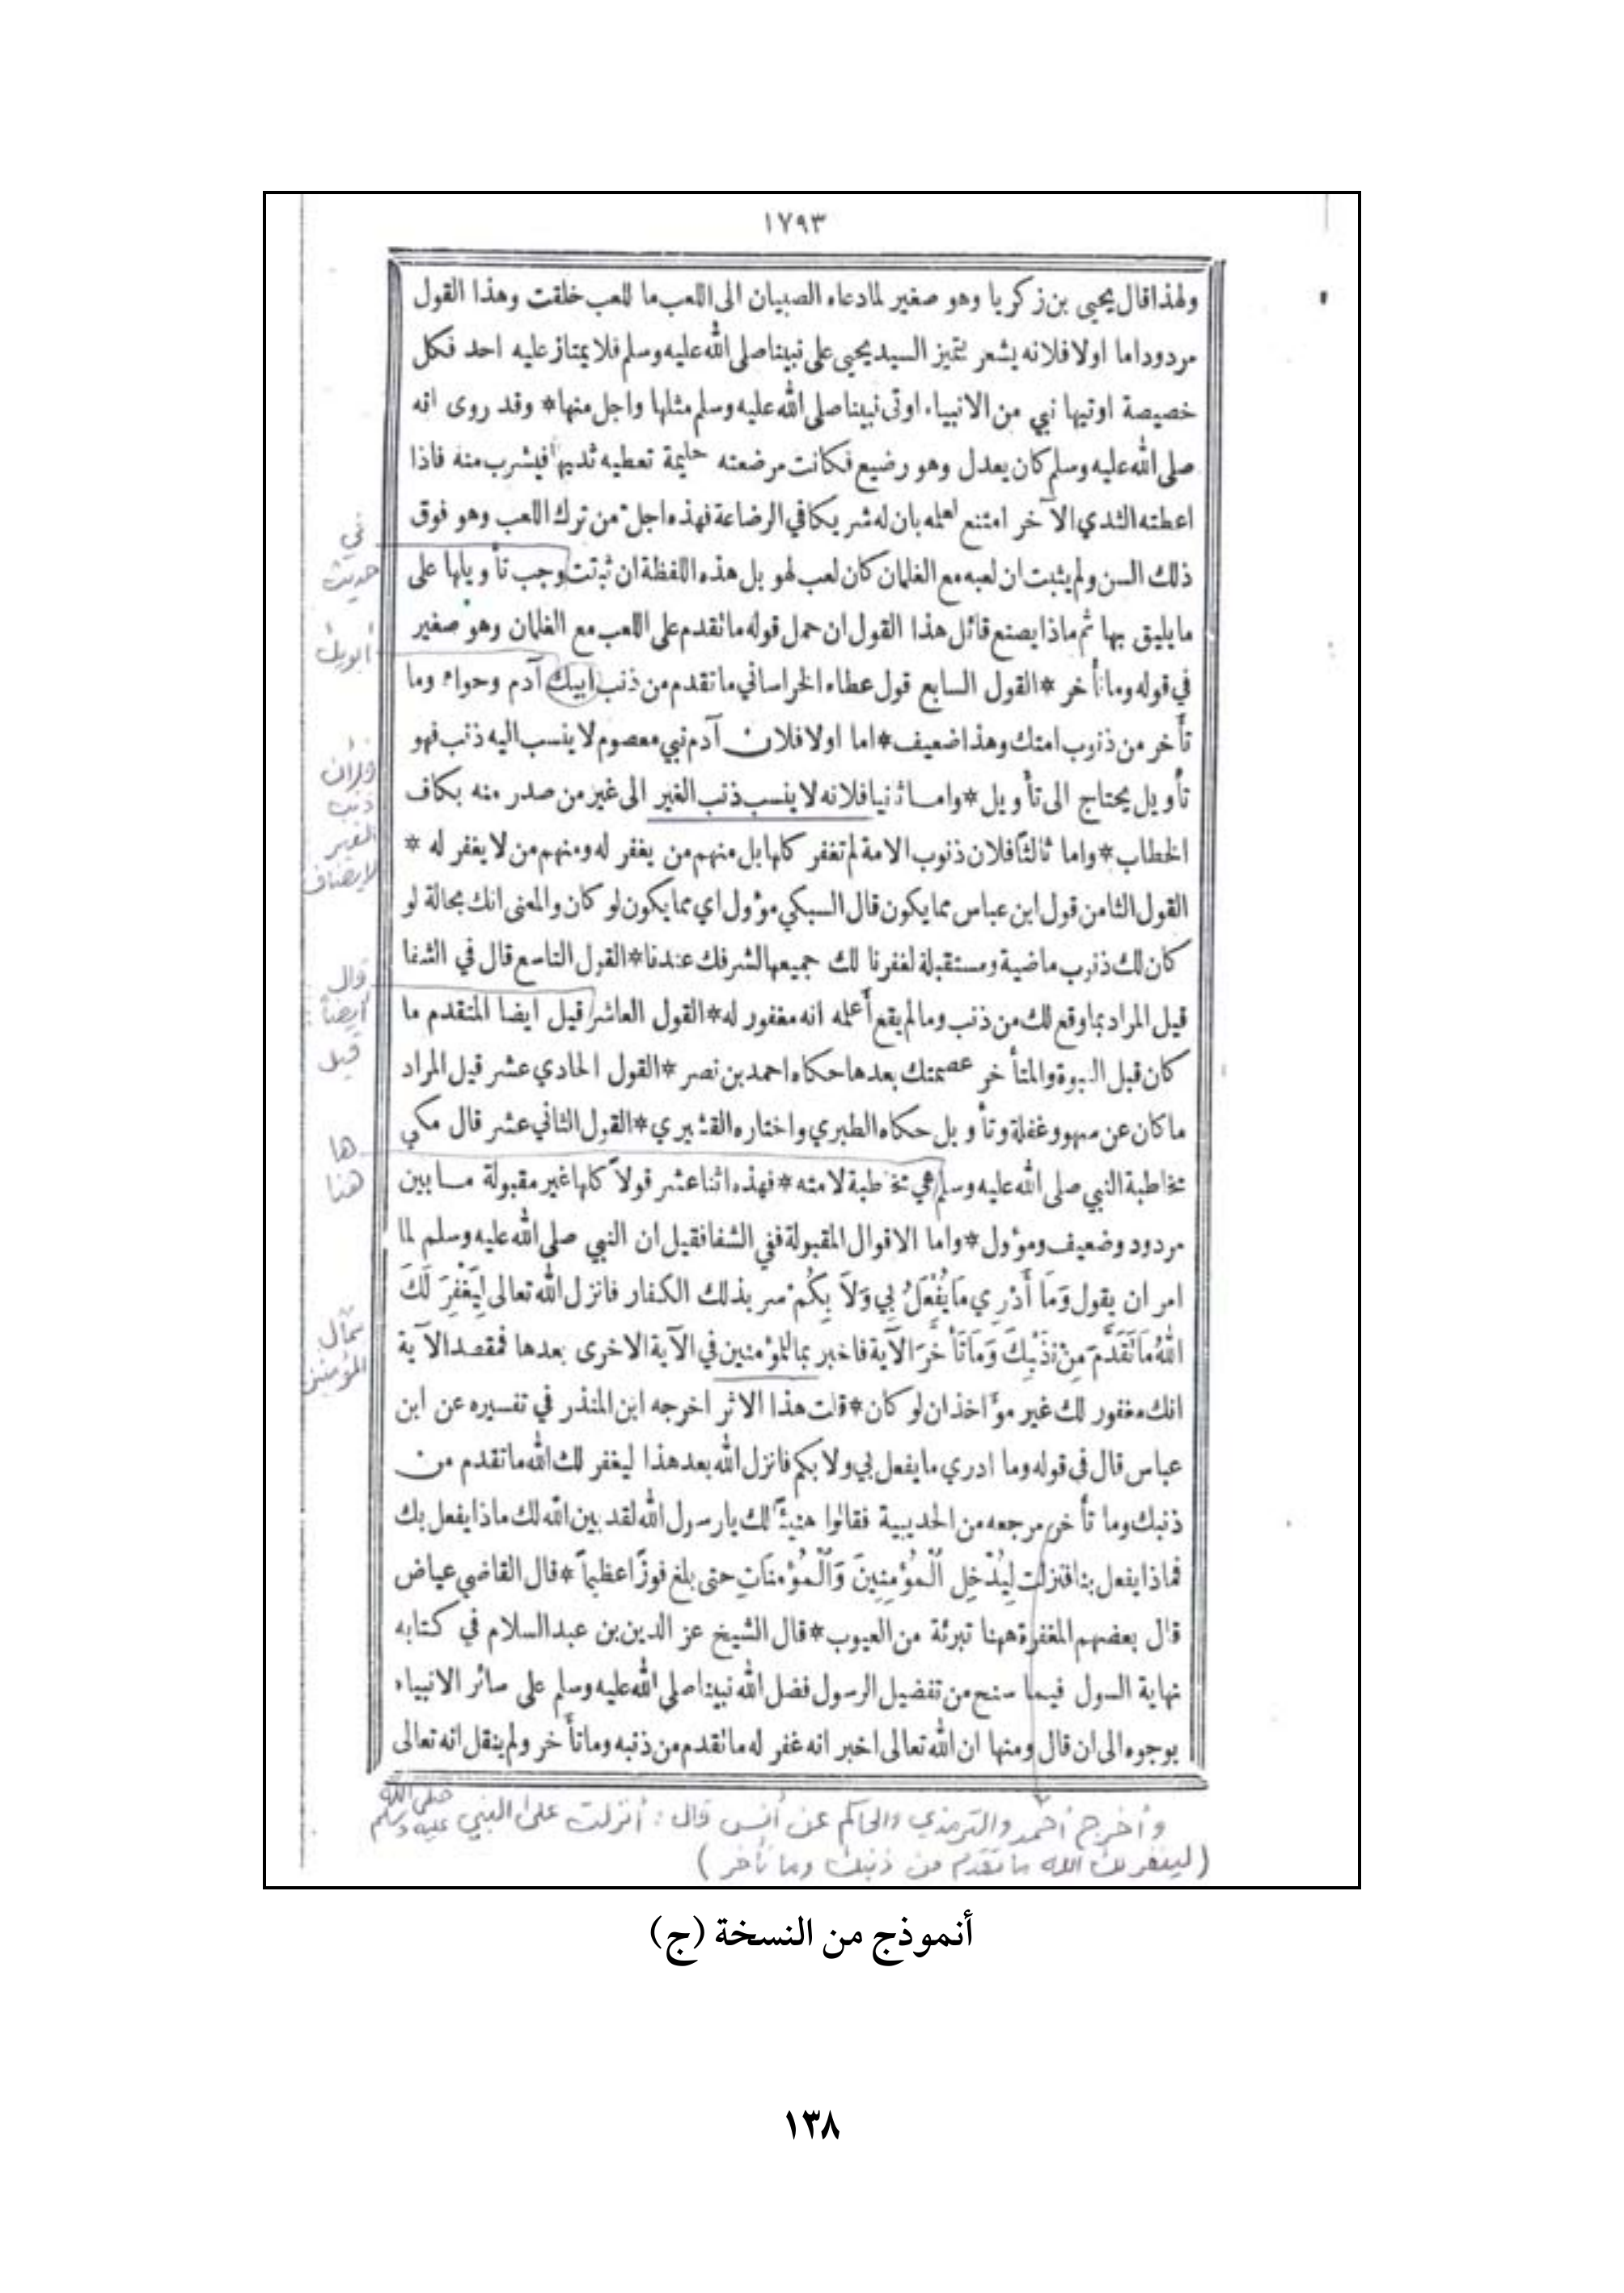 ١٧٩٣
ولهذا قال يحيى بن زكريا وهو صغير لما دعاه الصبيان الى اللعب ما للعب خلقت وهذا القول
مردود اما اولا فلانه يشعر بتميز السيد يحيى على نبينا صلى الله عليه وسلم فلا يمتاز عليه احد فكل
خصيصة اوتيها نبي من الانبياء اوتى نبينا صلى الله عليه وسلم مثلها واجل منها * وقد روى انه
صلى الله عليه وسلم كان يعدل وهو رضيع فكانت مرضعته حليمة تعطيه ثديها فيشرب منه فاذا
اعطته الثدي الآخر امتنع لعلمه بان له شريكا في الرضاعة فهذه اجل من ترك اللعب وهو فوق
ذلك السن ولم يثبت ان لعبه مع الغلمان كان لعب لهو بل هذه اللفظة ان ثبتت وجب تأويلها على
ما يليق بها ثم ماذا يصنع قائل هذا القول ان حمل قوله ما تقدم على اللعب مع الغلمان وهو صغير
في قوله وما تأخر * القول السابع قول عطاء الخراساني ما تقدم من ذنب ابيك آدم وحواء وما
تأخر من ذنوب امتك وهذا ضعيف * اما اولا فلان آدم نبي معصوم لا ينسب اليه ذنب فهو
تأويل يحتاج الى تأويل * واما ثانيا فلانه لا ينسب ذنب الغير الى غير من صدر منه بكاف
الخطاب * واما ثالثاً فلان ذنوب الامة لم تغفر كلها بل منهم من يغفر له ومنهم من لا يغفر له *
القول الثامن قول ابن عباس مما يكون قال السبكي مؤول اي مما يكون لو كان والمعنى انك بحالة لو
كان لك ذنوب ماضية ومستقبلة لغفرنا لك جميعها لشرفك عندنا * القول التاسع قال في الشفا
قيل المراد بما وقع لك من ذنب وما لم يقع أعلمه انه مغفور له * القول العاشر قيل ايضا المتقدم ما
كان قبل النبوة والمتأخر عصمتك بعدها حكاه احمد بن نصر * القول الحادي عشر قيل المراد
ما كان عن سهو وغفلة وتأويل حكاه الطبري واختاره القشيري * القول الثاني عشر قال مكي
مخاطبة النبي صلى الله عليه وسلم هي مخاطبة لامته * فهذه اثنا عشر قولاً كلها غير مقبولة ما بين
مردود وضعيف ومؤول * واما الاقوال المقبولة ففي الشفا فقيل ان النبي صلى الله عليه وسلم لما
امر ان يقول وَمَا أَدْرِي مَا يُفْعَلُ بِي وَلَا بِكُمْ سر بذلك الكفار فانزل الله تعالى لِيَغْفِرَ لَكَ
اللهُ مَا تَقَدَّمَ مِنْ ذَنْبِكَ وَمَا تَأَخَّرَ الآية فاخبر بما للمؤمنين في الآية الاخرى بعدها فمقصد الآية
انك مغفور لك غير مؤاخذ ان لو كان * قلت هذا الاثر اخرجه ابن المنذر في تفسيره عن ابن
عباس قال في قوله وما ادري ما يفعل بي ولا بكم فانزل الله بعد هذا ليغفر لك الله ما تقدم من
ذنبك وما تأخر مرجعه من الحديبية فقالوا هنيئاً لك يا رسول الله لقد بين الله لك ماذا يفعل بك
فماذا يفعل بنا فنزلت لِيُدْخِلَ الْمُؤْمِنِينَ وَالْمُؤْمِنَاتِ حتى بلغ فوزاً عظيماً * قال القاضي عياض
قال بعضهم المغفرة ههنا تبرئة من العيوب * قال الشيخ عز الدين بن عبد السلام في كتابه
نهاية السول فيما سنح من تفضيل الرسول فضل الله نبينا صلى الله عليه وسلم على سائر الانبياء
بوجوه الى ان قال ومنها ان الله تعالى اخبر انه غفر له ما تقدم من ذنبه وما تأخر ولم ينقل انه تعالى
في
حديث
أبويك
فلأن
ذنب
الغير
لا يضاف
قال
أيضاً
قيل
ها
هنا
بمآل
المؤمنين
وأخرج أحمد والترمذي والحاكم عن أنس قال : أنزلت على النبي صلى الله عليه وسلم
(ليغفر لك الله ما تقدم من ذنبك وما تأخر)
أنموذج من النسخة (ج)
١٣٨